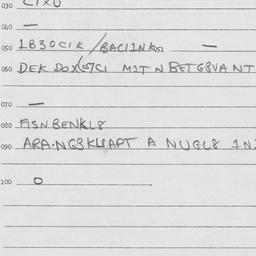 030 CIXO
040 —
050 1830CIK / BACI1NK052 —
060 DEK DOX(057CI M1T N BET G8VA NT
070 —
080 FISN BENKL8
090 ARA·NG8KL8APT A NUGL8 1N
100 0